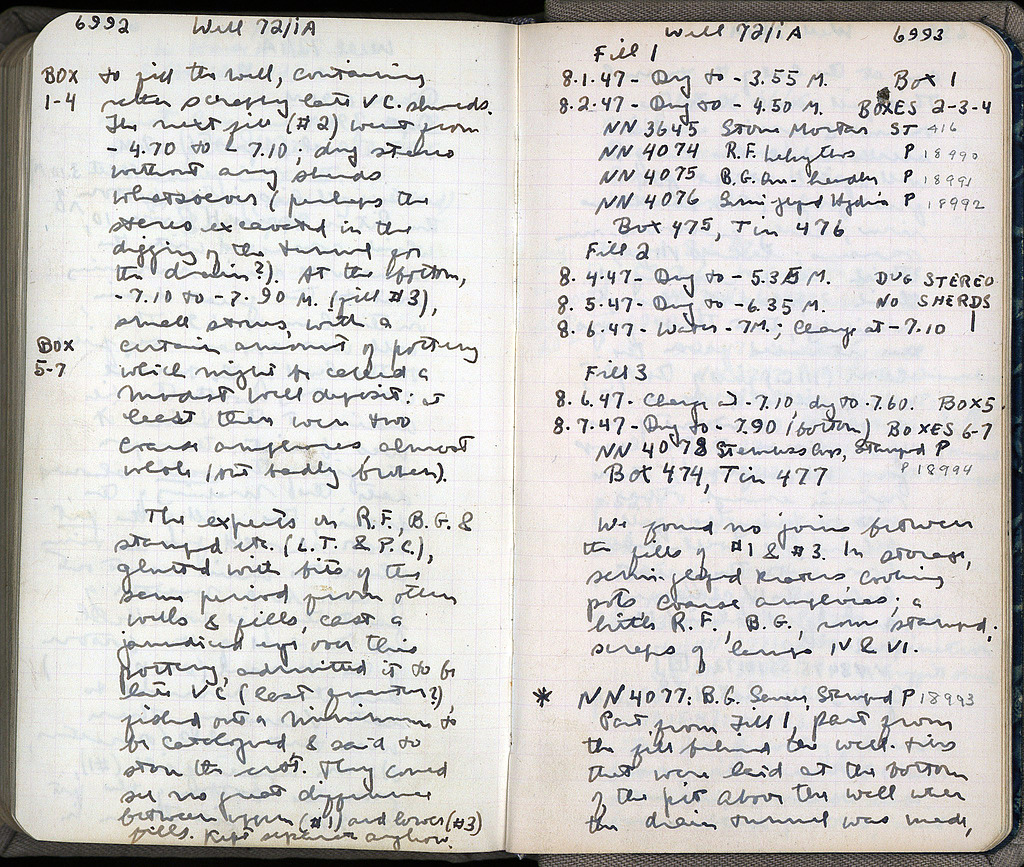 6992 Well 72/1A
BOX to fill the well, containing
1-4 rather scrappy late V C. sherds.
The next fill (#2) went from
-4.70 to -7.10; dug stereo
without any sherds
whatsoever (perhaps the
stereo excavated in the
digging of the tunnel for
the drain?). At the bottom,
-7.10 to -7.90 M. (fill #3),
small stones, with a
BOX certain amount of pottery
5-7 which might be called a
modest well deposit: at
least there were two
coarse amphoras almost
whole (but badly broken).
The experts in R.F., B.G. &
stamped etc. (L.T. & P.C.),
glutted with bits of the
same period from other
wells & fills, cast a
jaundiced eye over this
pottery, admitted it to be
late V C (last quarter?),
picked out a minimum to
be catalogued, & said to
store the rest. They could
see no great difference
between upper (#1) and lower (#3)
fills. Kept separate anyhow.
Well 72/1A 6993
Fill 1
8.1.47- Dug to -3.55 M. Box 1
8.2.47- Dug to -4.50 M. BOXES 2-3-4
NN 3645 Stone Mortar ST 416
NN 4074 R.F. Lekythos P 18990
NN 4075 B.G. One-handler P 18991
NN 4076 Semi-glazed Hydria P 18992
Box 475, Tin 476
Fill 2
8.4.47- Dug to -5.35 M. DUG STEREO
8.5.47- Dug to -6.35 M. NO SHERDS
8.6.47- Water -7M.; Change at -7.10
Fill 3
8.6.47- Change at -7.10, dug to -7.60. BOX 5
8.7.47- Dug to -7.90 (bottom) BOXES 6-7
NN 4078 Stemless Cup, Stamped P
P 18994
Box 474, Tin 477
We found no joins between
the fills of #1 & #3. In storage,
semi-glazed kraters, cooking
pots, coarse amphoras; a
little R.F., B.G., some stamped;
scraps of lamps IV & VI.
* NN 4077: B.G. Saucer, Stamped P 18993
Part from Fill 1, part from
the fill behind the well-tiles
that were laid at the bottom
of the pit above the well when
the drain tunnel was made,